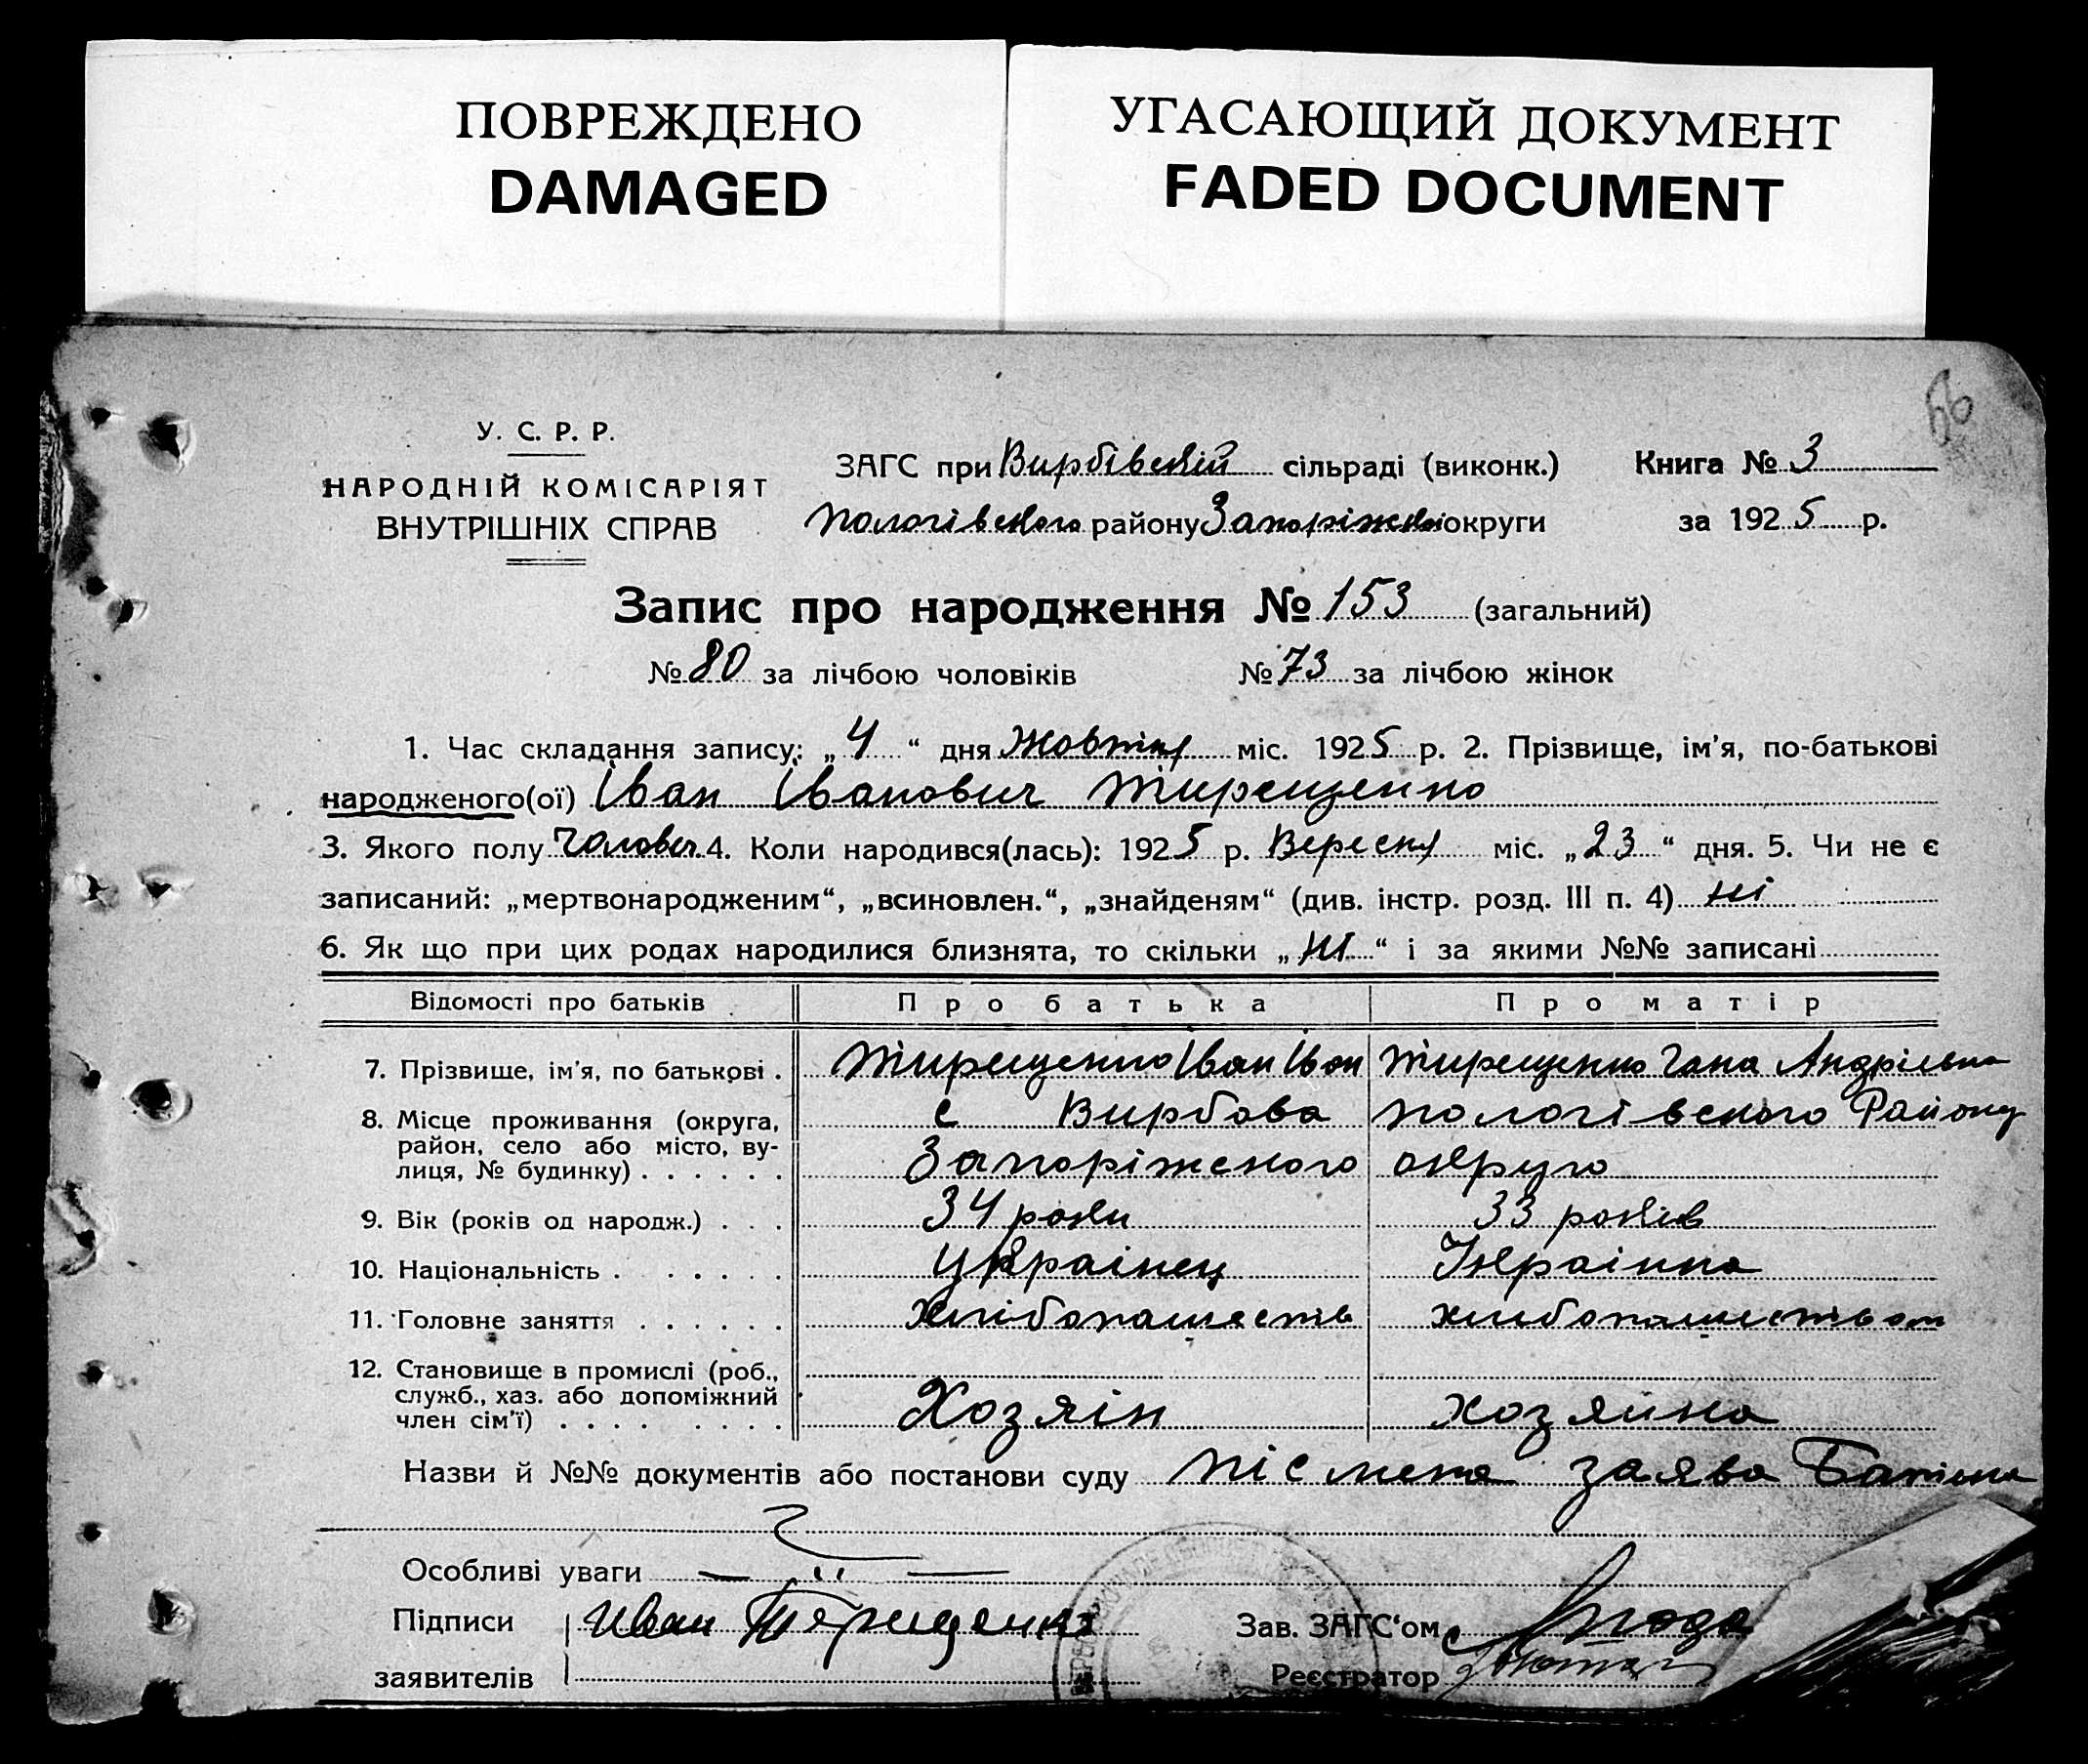 ПОВРЕЖДЕНО
DAMAGED
УГАСАЮЩИЙ ДОКУМЕНТ
FADED DOCUMENT
66
У. С. Р. Р.
НАРОДНІЙ КОМІСАРІЯТ
ВНУТРІШНІХ СПРАВ
ЗАГС при Вирбівский сільраді (виконк.) Книга № 3
Пологівского району Запоріжскої округи за 1925 р.
Запис про народження № 153 (загальний)
№ 80 за лічбою чоловіків № 73 за лічбою жінок
1. Час складання запису: „4“ дня Жовтня міс. 1925 р. 2. Прізвище, ім'я, по-батькові
народженого(ої) Іван Іванович Тирещенко
3. Якого полу Чоловіч. 4. Коли народився(лась): 1925 р. Вересня міс. „23“ дня. 5. Чи не є
записаний: „мертвонародженим“, „всиновлен.“, „знайденям“ (див. інстр. розд. III п. 4) ні
6. Як що при цих родах народилися близнята, то скільки „ні“ і за якими №№ записані
Відомості про батьків Про батька Про матір
7. Прізвище, ім'я, по батькові . Тирещенко Іван Іван Тирещенко Гана Андрієвна
8. Місце проживання (округа, с Вирбова Пологівского Району
район, село або місто, ву-
лиця, № будинку) . . . . . . Запоріжского округо
9. Вік (років од народж.) . . . 34 роки 33 років
10. Національність . . . . . . Українец Украінка
11. Головне заняття . . . . . . хлібопашеств хлибопашеством
12. Становище в промислі (роб.,
служб., хаз. або допоміжний
член сім'ї) . . . . . . . . Хозяін хозяйка
Назви й №№ документів або постанови суду пісмена заява Батька
Особливі уваги
Підписи Иван Терещенко Зав. ЗАГС'ом
заявителів Реєстратор